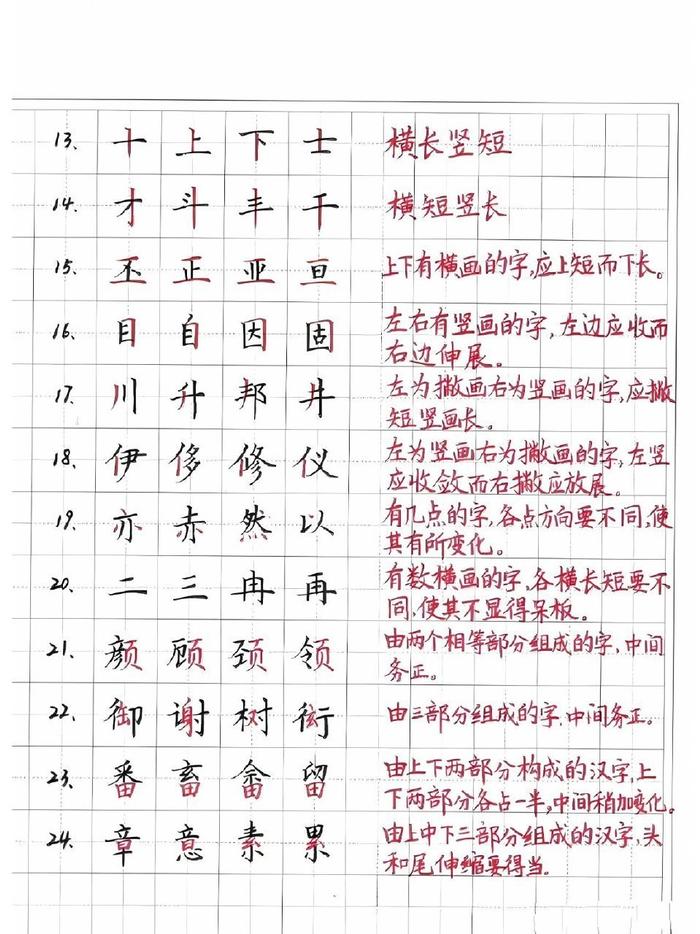 13. 十 上 下 士 横长竖短
14. 才 斗 丰 干 横短竖长
15. 丕 正 亚 亘 上下有横画的字,应上短而下长。
16. 目 自 因 固 左右有竖画的字,左边应收而
右边伸展。
17. 川 升 邦 井 左为撇画右为竖画的字,应撇
短竖画长。
18. 伊 侈 修 仪 左为竖画右为撇画的字,左竖
应收敛而右撇应放展。
19. 亦 赤 然 以 有几点的字,各点方向要不同,使
其有所变化。
20. 二 三 冉 再 有数横画的字,各横长短要不
同,使其不显得呆板。
21. 颜 顾 颈 领 由两个相等部分组成的字,中间
务正。
22. 御 谢 树 衔 由三部分组成的字,中间务正。
23. 番 畜 畬 留 由上下两部分构成的汉字,上
下两部分各占一半,中间稍加变化。
24. 章 意 素 累 由上中下三部分组成的汉字,头
和尾伸缩要得当。